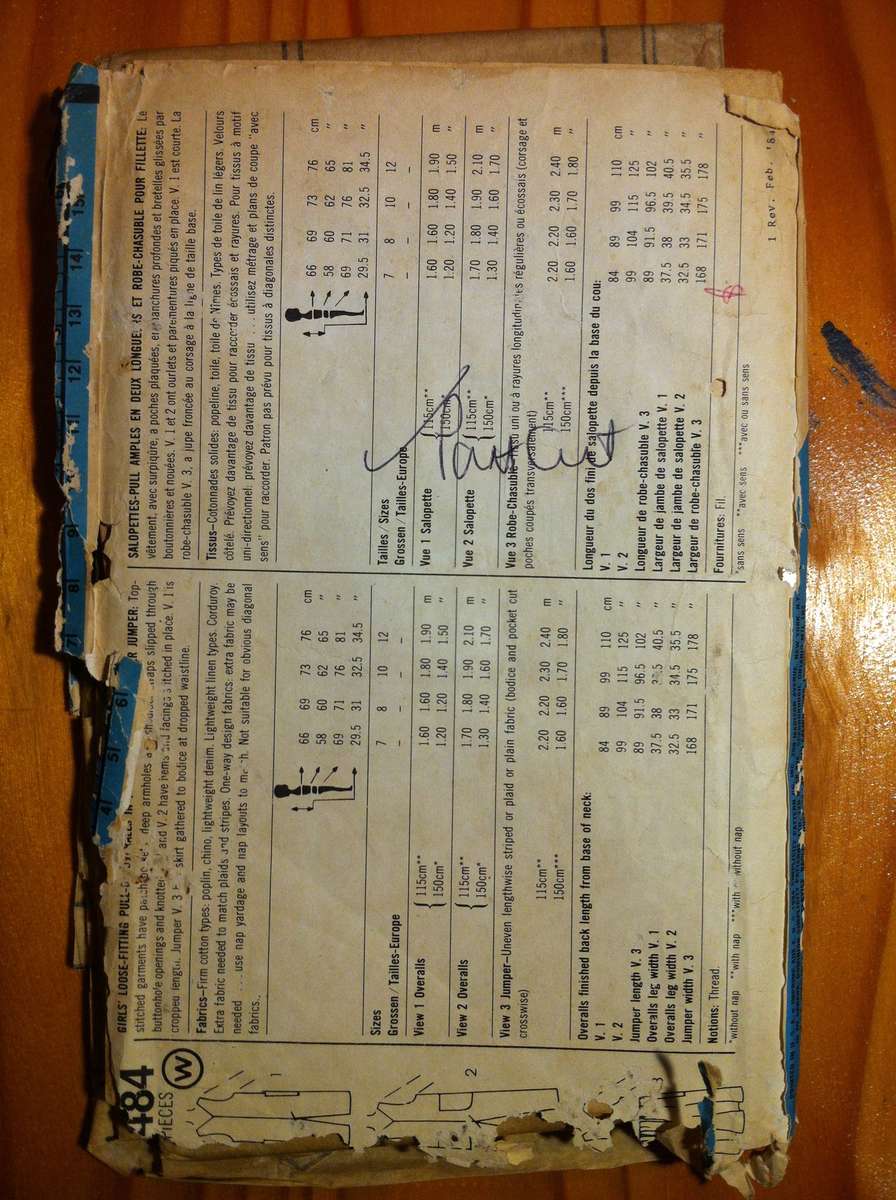 484
PIECES W
1
2
3
GIRLS' LOOSE-FITTING JUMPER: Top-
stitched garments have deep armholes slipped through
buttonhole openings and knotted and V. 2 have hems and facings stitched in place. V. 1 is
cropped length. Jumper V. 3 skirt gathered to bodice at dropped waistline.
Fabrics—Firm cotton types: poplin, chino, lightweight denim. Lightweight linen types. Corduroy.
Extra fabric needed to match plaids and stripes. One-way design fabrics: extra fabric may be
needed ... use nap yardage and nap layouts to match. Not suitable for obvious diagonal
fabrics.
66 69 73 76 cm
58 60 62 65 "
69 71 76 81 "
29.5 31 32.5 34.5 "
Sizes 7 8 10 12
Grossen/Tailles-Europe – – – –
View 1 Overalls { 115cm** 1.60 1.60 1.80 1.90 m
150cm* 1.20 1.20 1.40 1.50 "
View 2 Overalls { 115cm** 1.70 1.80 1.90 2.10 m
150cm* 1.30 1.40 1.60 1.70 "
View 3 Jumper—Uneven lengthwise striped or plaid or plain fabric (bodice and pocket cut
crosswise)
115cm** 2.20 2.20 2.30 2.40 m
150cm*** 1.60 1.60 1.70 1.80 "
Overalls finished back length from base of neck:
V. 1 84 89 99 110 cm
V. 2 99 104 115 125 "
Jumper length V. 3 89 91.5 96.5 102 "
Overalls leg width V. 1 37.5 38 40.5 "
Overalls leg width V. 2 32.5 33 34.5 35.5 "
Jumper width V. 3 168 171 175 178 "
Notions: Thread.
*without nap **with nap ***with without nap
SALOPETTES-PULL AMPLES EN DEUX LONGUEURS ET ROBE-CHASUBLE POUR FILLETTE: Le
vêtement, avec surpiqûre, a poches plaquées, emmanchures profondes et bretelles glissées par
boutonnières et nouées. V. 1 et 2 ont ourlets et parementures piqués en place. V. 1 est courte. La
robe-chasuble V. 3, a jupe froncée au corsage à la ligne de taille basse.
Tissus—Cotonnades solides: popeline, toile, toile de Nîmes. Types de toile de lin légers. Velours
côtelé. Prévoyez davantage de tissu pour raccorder écossais et rayures. Pour tissus à motif
uni-directionnel: prévoyez davantage de tissu ... utilisez métrage et plans de coupe "avec
sens" pour raccorder. Patron pas prévu pour tissus à diagonales distinctes.
66 69 73 76 cm
58 60 62 65 "
69 71 76 81 "
29.5 31 32.5 34.5 "
Tailles/Sizes 7 8 10 12
Grossen/Tailles-Europe – – – –
Vue 1 Salopette { 115cm** 1.60 1.60 1.80 1.90 m
150cm* 1.20 1.20 1.40 1.50 "
Vue 2 Salopette { 115cm** 1.70 1.80 1.90 2.10 m
150cm* 1.30 1.40 1.60 1.70 "
Vue 3 Robe-Chasuble—Tissu uni ou à rayures longitudinales régulières ou écossais (corsage et
poches coupés transversalement)
115cm** 2.20 2.20 2.30 2.40 m
150cm*** 1.60 1.60 1.70 1.80 "
Longueur du dos fini de salopette depuis la base du cou:
V. 1 84 89 99 110 cm
V. 2 99 104 115 125 "
Longueur de robe-chasuble V. 3 89 91.5 96.5 102 "
Largeur de jambe de salopette V. 1 37.5 38 39.5 40.5 "
Largeur de jambe de salopette V. 2 32.5 33 34.5 35.5 "
Largeur de robe-chasuble V. 3 168 171 175 178 "
Fournitures: Fil.
*sans sens **avec sens ***avec ou sans sens
1 Rev. Feb. '84
4 5 6 7 8 9 11 12 13 14 15